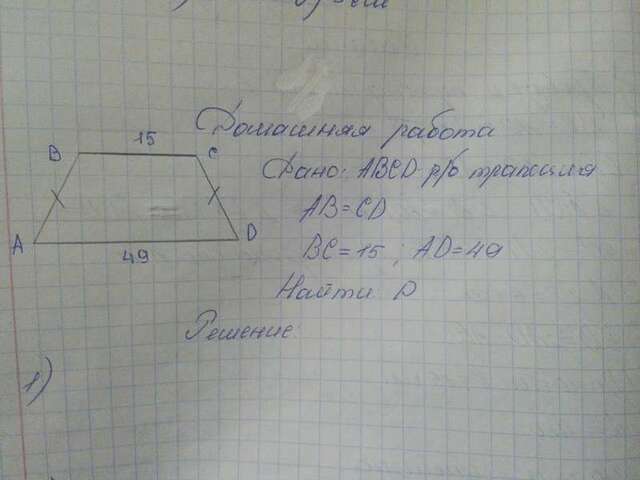 15
B
C
A
D
49
Домашняя работа
Дано: ABCD р/б трапеция
AB=CD
BC=15 ; AD=49
Найти P
Решение:
1)